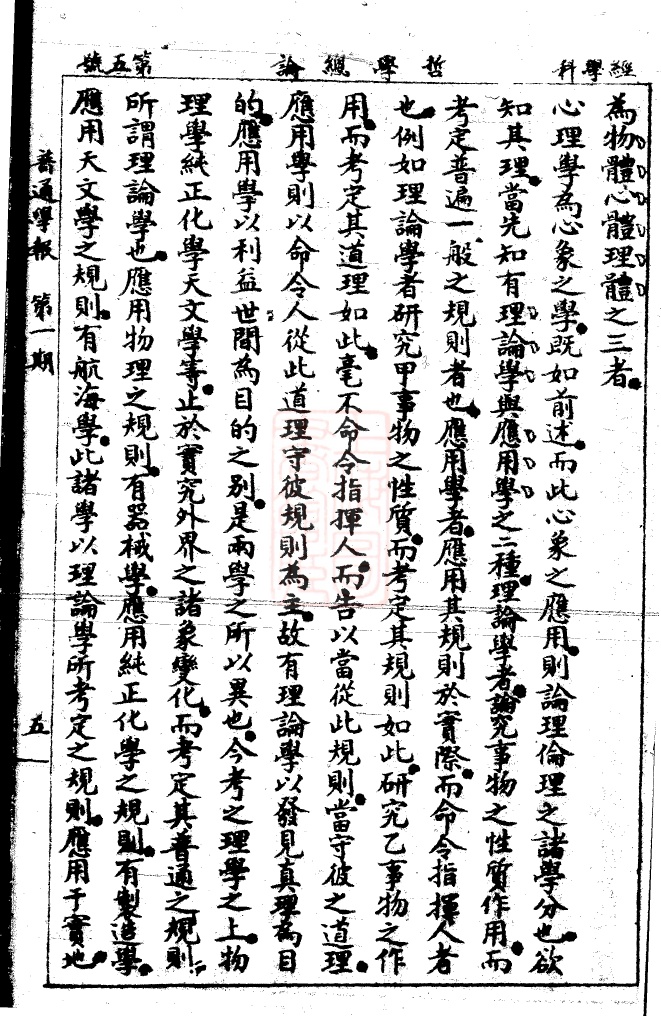 經學科
哲學總論
第五號
為物體心體理體之三者。
心理學為心象之學。既如前述。而此心象之應用。則論理倫理之諸學分也。欲
知其理。當先知有理論學與應用學之二種。理論學者。論究事物之性質作用。而
考定普遍一般之規則者也。應用學者。應用其規則於實際。而命令指揮人者
也。例如理論學者研究甲事物之性質。而考定其規則如此。研究乙事物之作
用。而考定其道理如此。毫不命令指揮人。而告以當從此規則。當守彼之道理。
應用學則以命令人從此道理守彼規則為主。故有理論學以發見真理為目
的。應用學以利益世間為目的之別。是兩學之所以異也。今考之理學之上。物
理學純正化學天文學等。止於實究外界之諸象變化。而考定其普通之規則。
所謂理論學也。應用物理之規則。有器械學。應用純正化學之規則。有製造學。
應用天文學之規則。有航海學。此諸學以理論學所考定之規則。應用于實地。
普通學報 第一期
五